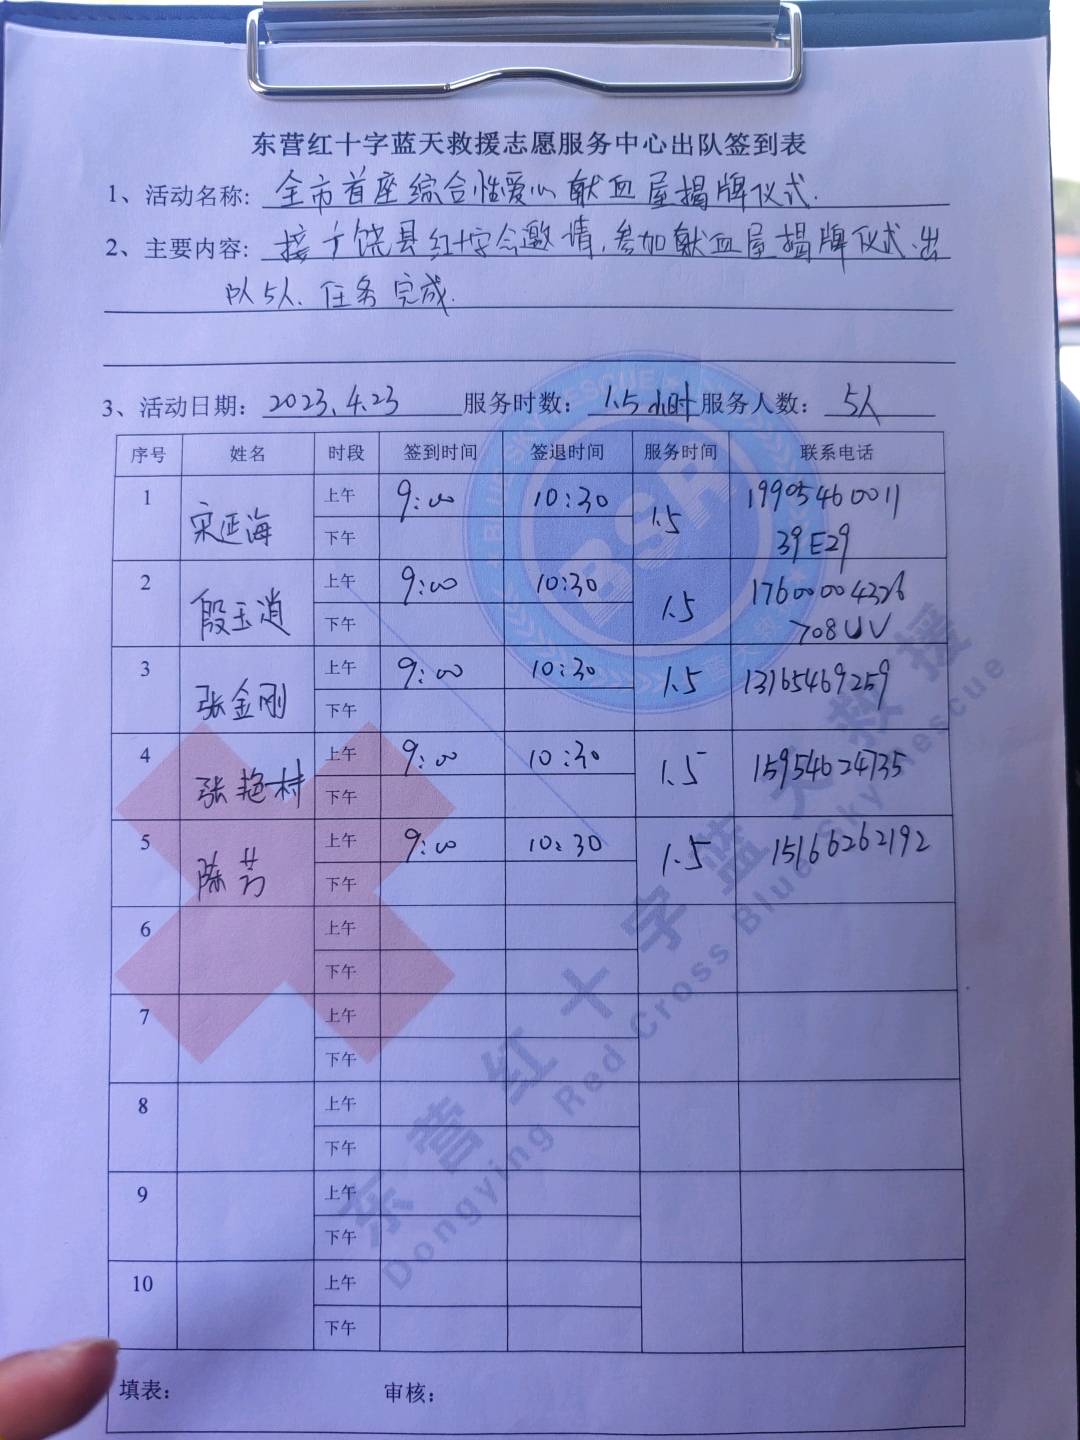 东营红十字蓝天救援志愿服务中心出队签到表
1、活动名称: 全市首座综合性爱心献血屋揭牌仪式.
2、主要内容: 接广饶县红十字会邀请,参加献血屋揭牌仪式.出
队5人.任务完成.
3、活动日期: 2023.4.23 服务时数: 1.5小时 服务人数: 5人
序号 姓名 时段 签到时间 签退时间 服务时间 联系电话
1 宋延海 上午 9:00 10:30 1.5 19905460011
下午 39E29
2 殷玉道 上午 9:00 10:30 1.5 17600004326
下午 708UV
3 张金刚 上午 9:00 10:30 1.5 13165469259
下午
4 张艳村 上午 9:00 10:30 1.5 15954624735
下午
5 陈芳 上午 9:00 10:30 1.5 15166262192
下午
6 上午
下午
7 上午
下午
8 上午
下午
9 上午
下午
10 上午
下午
填表: 审核:
BSR
东营红十字蓝天救援
Dongying Red Cross Blue Sky Rescue